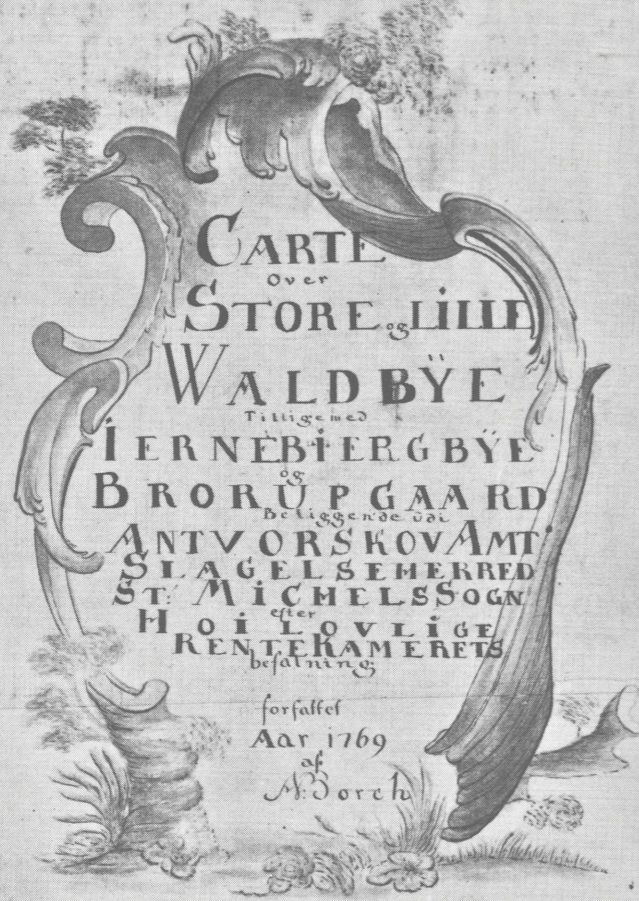 CARTE
Over
STORE og LILLE
WALDBŸE
Tilligemed
IERNEBIERGBŸE
og
BRORUPGAARD
Beliggende udi
ANTVORSKOV AMT
SLAGELSEHERRED
ST: MICHELS SOGN
efter
HOILOVLIGE
RENTEKAMERETS
befalning
forfattet
Aar 1769
af
N: Borch